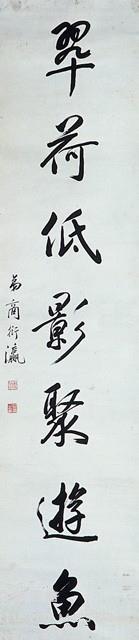 翠荷低影聚遊魚
商衍瀛